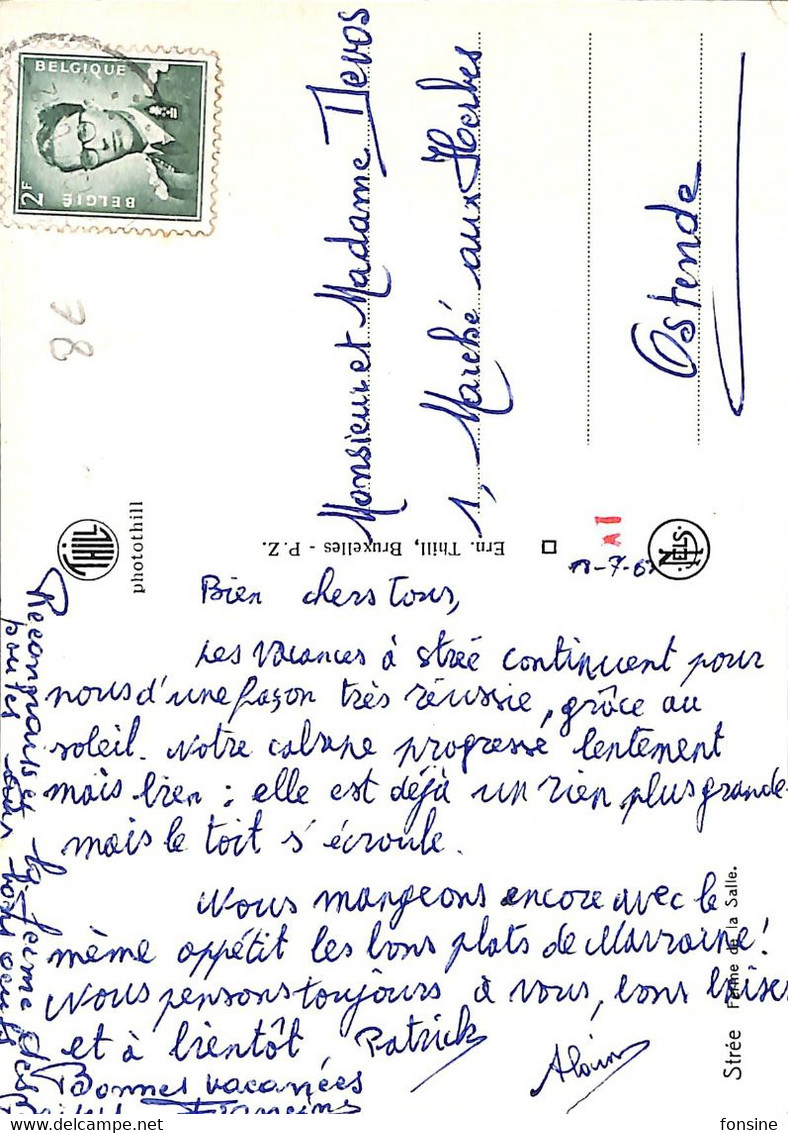 BELGIQUE
2F BELGIË
Monsieur et Madame Devos
1, Marché aux Herbes
Ostende
87
THILL
photothill
Ern. Thill, Bruxelles - P.Z.
A1
NELS
Bien chers tous,
Les vacances à Strée continuent pour
nous d'une façon très réussie, grâce au
soleil. Notre cabane progresse lentement
mais bien : elle est déjà un rien plus grande
mais le toit s'écroule.
Nous mangeons encore avec le
même appétit les bons plats de Marraine!
Nous pensons toujours à vous, bons baises
et à bientôt, Patrick
Alain
Bonnes vacances
la ferme des
Strée Ferme de la Salle.
fonsine